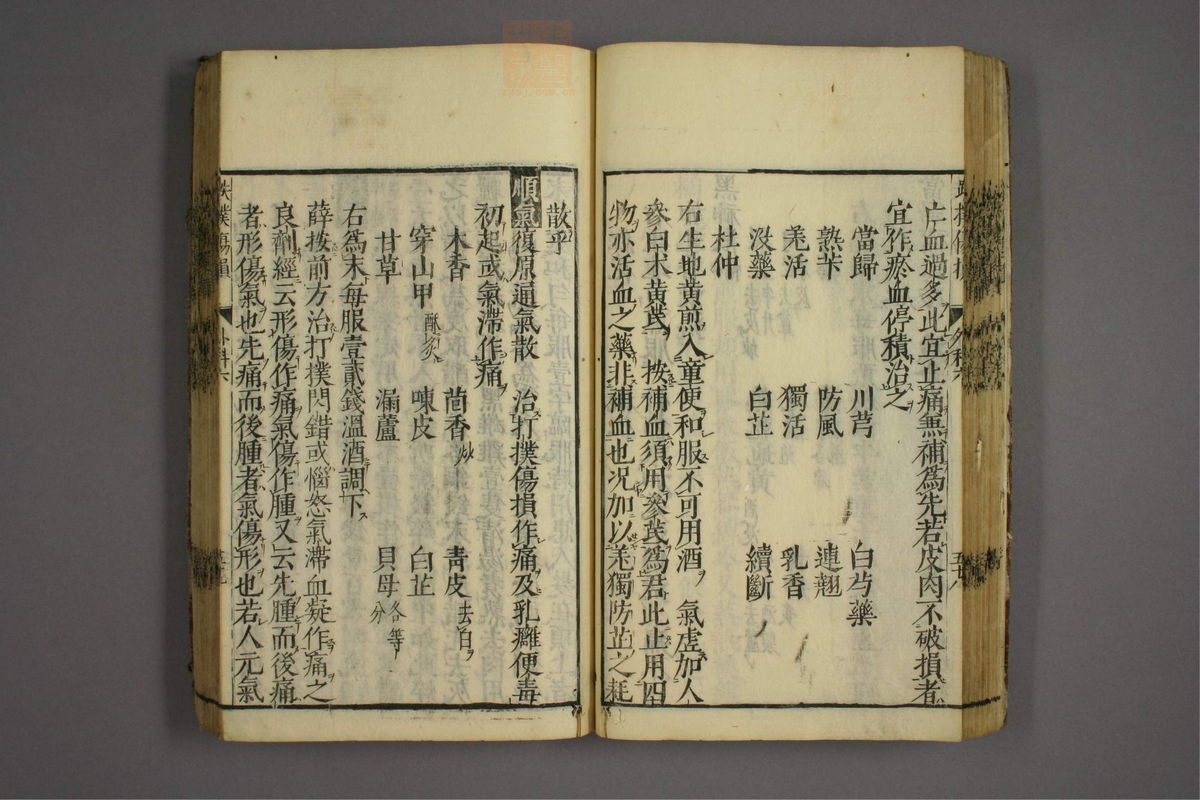 亡血過多此宜止痛兼補爲先若皮肉不破損者
宜作瘀血停積治之
當歸 川芎 白芍藥
熟芐 防風 連翹
羌活 獨活 乳香
沒藥 白芷 續斷
杜仲
右生地黄煎入童便和服不可用酒 氣虛加人
參白术黄芪 按補血須用參芪爲君此止用四
物亦活血之藥非補血也况加以羌獨防芷之耗
散乎
順氣復原通氣散 治打撲傷損作痛及乳癰便毒
初起或氣滯作痛
木香 茴香炒 青皮去白
穿山甲酥炙 陳皮 白芷
甘草 漏蘆 貝母各等分
右爲末每服壹貳錢溫酒調下
薛按前方治打撲閃錯或惱怒氣滯血凝作痛之
良劑經云形傷作痛氣傷作腫又云先腫而後痛
者形傷氣也先痛而後腫者氣傷形也若人元氣
跌撲傷損 外科六